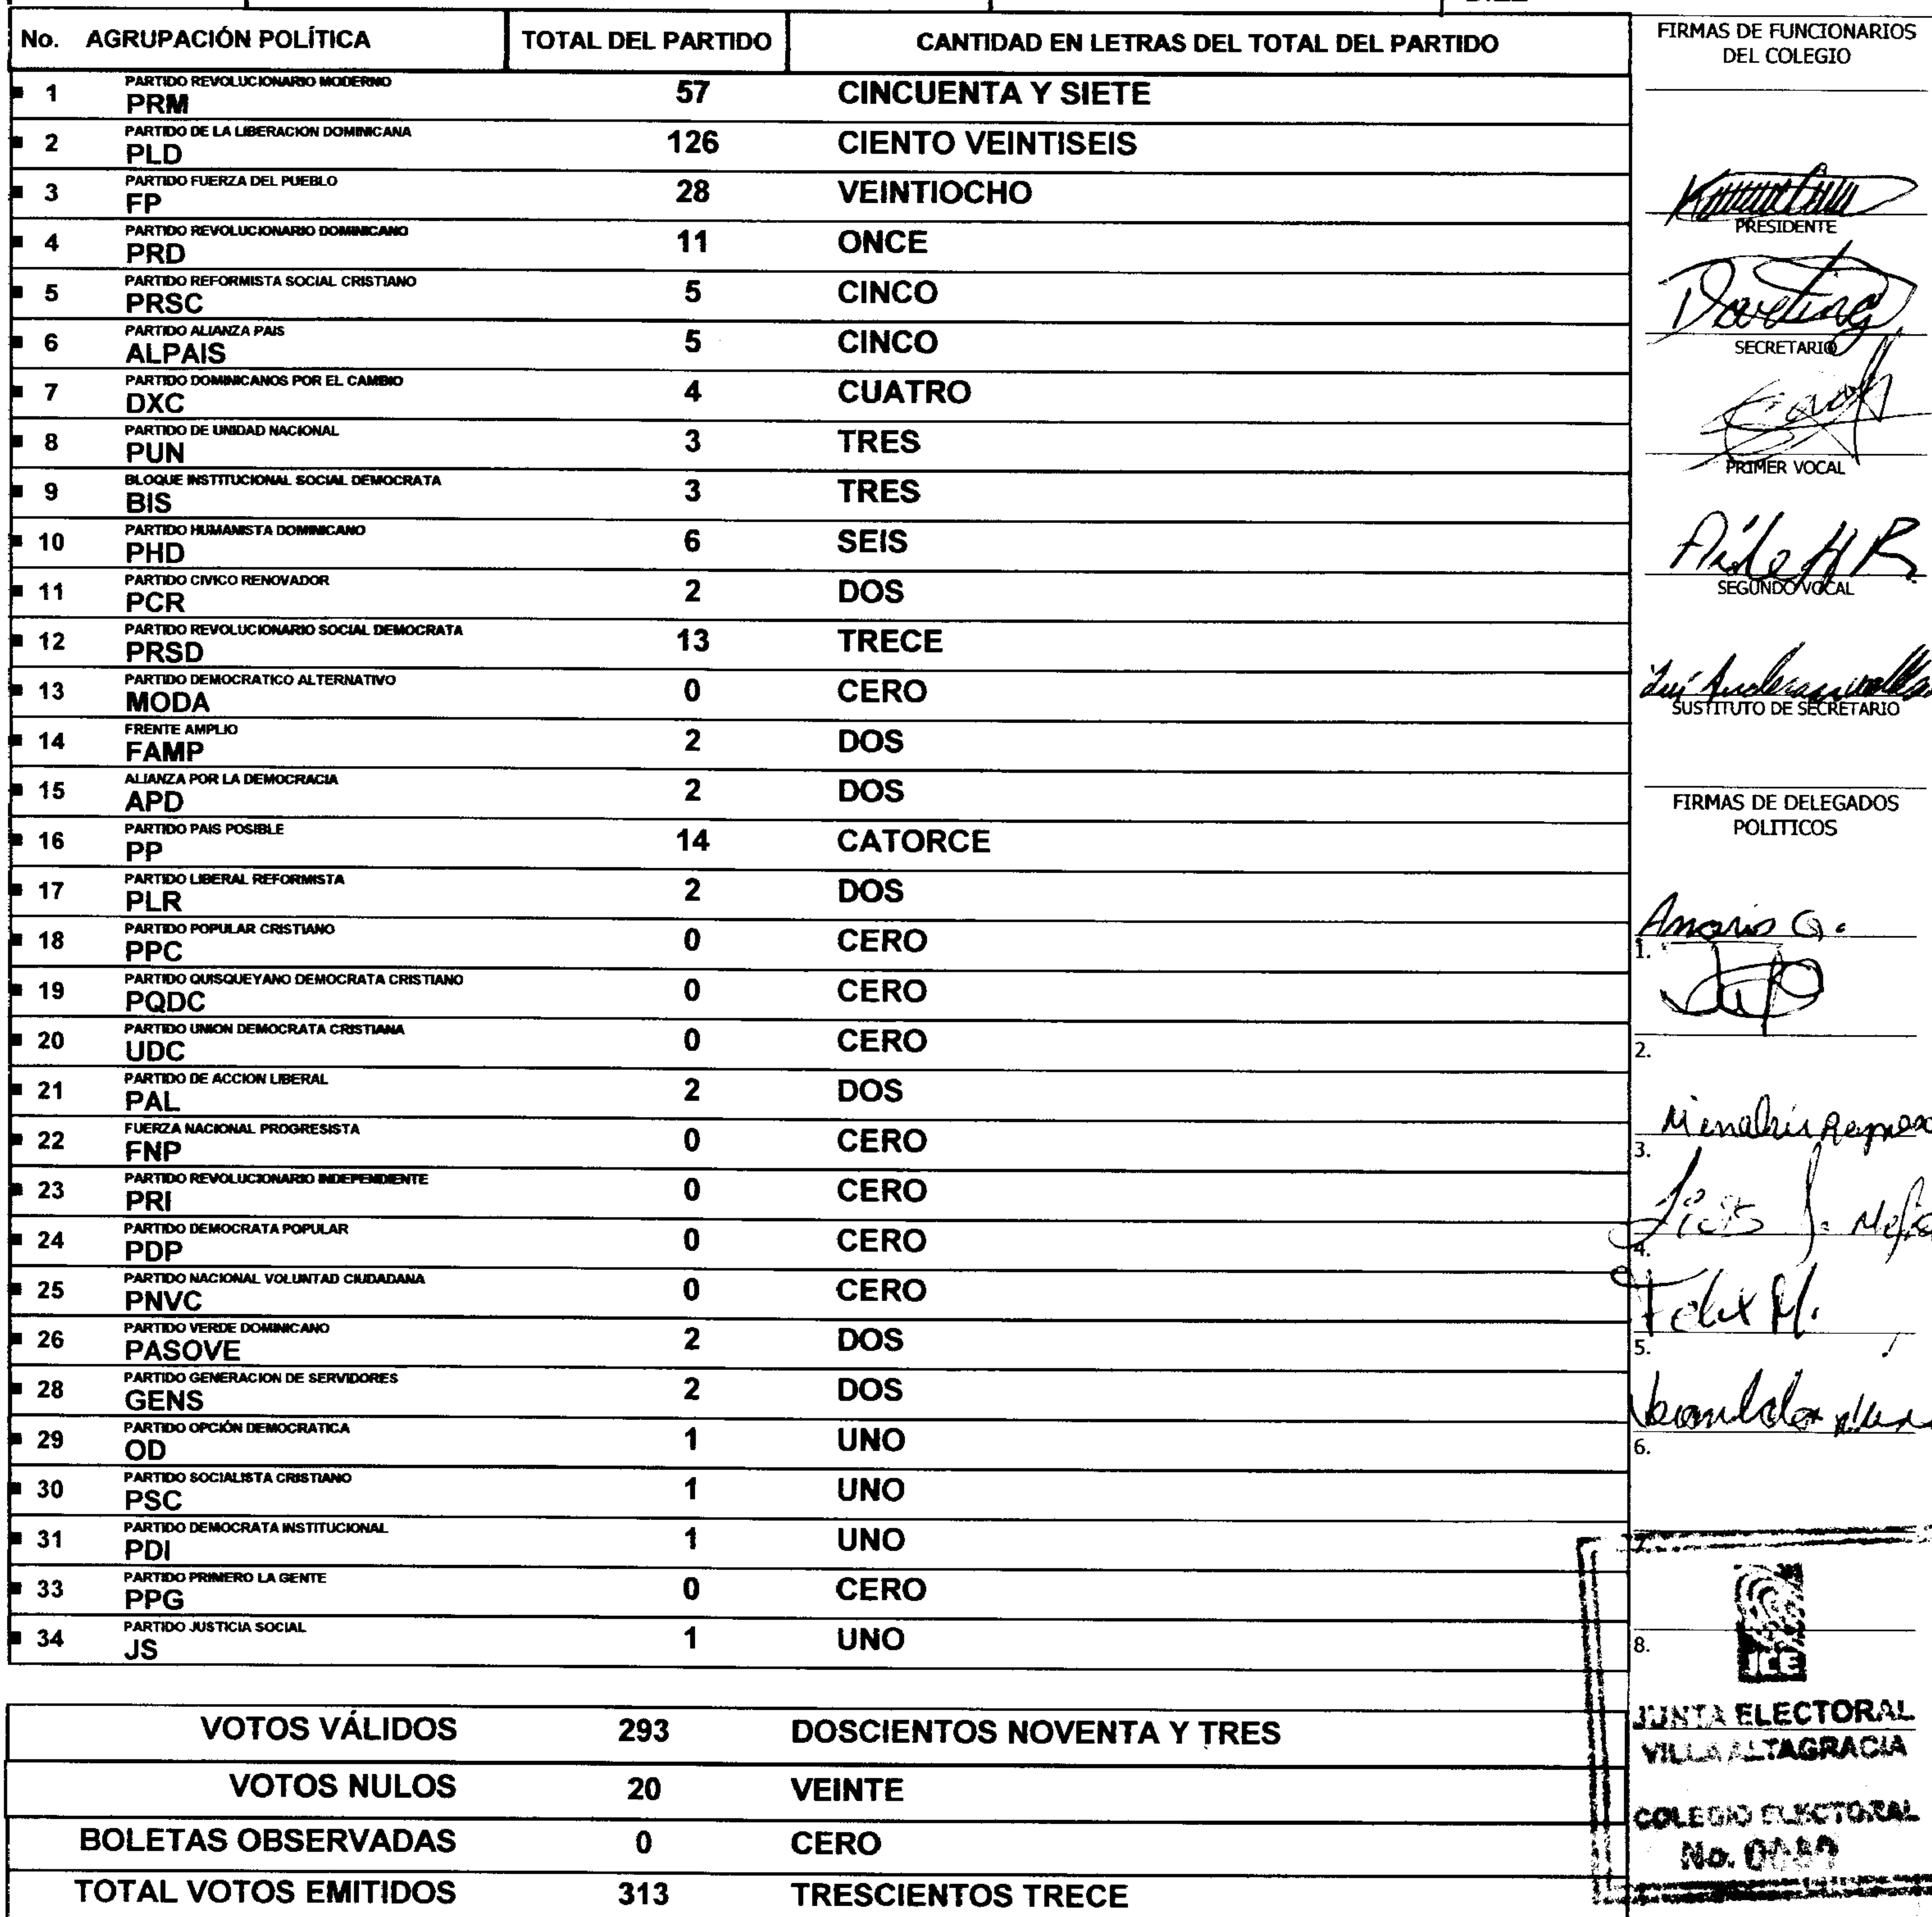 No. AGRUPACIÓN POLÍTICA TOTAL DEL PARTIDO CANTIDAD EN LETRAS DEL TOTAL DEL PARTIDO
PARTIDO REVOLUCIONARIO MODERNO
1 PRM 57 CINCUENTA Y SIETE
PARTIDO DE LA LIBERACION DOMINICANA
2 PLD 126 CIENTO VEINTISEIS
PARTIDO FUERZA DEL PUEBLO
3 FP 28 VEINTIOCHO
PARTIDO REVOLUCIONARIO DOMINICANO
4 PRD 11 ONCE
PARTIDO REFORMISTA SOCIAL CRISTIANO
5 PRSC 5 CINCO
PARTIDO ALIANZA PAIS
6 ALPAIS 5 CINCO
PARTIDO DOMINICANOS POR EL CAMBIO
7 DXC 4 CUATRO
PARTIDO DE UNIDAD NACIONAL
8 PUN 3 TRES
BLOQUE INSTITUCIONAL SOCIAL DEMOCRATA
9 BIS 3 TRES
PARTIDO HUMANISTA DOMINICANO
10 PHD 6 SEIS
PARTIDO CIVICO RENOVADOR
11 PCR 2 DOS
PARTIDO REVOLUCIONARIO SOCIAL DEMOCRATA
12 PRSD 13 TRECE
PARTIDO DEMOCRATICO ALTERNATIVO
13 MODA 0 CERO
FRENTE AMPLIO
14 FAMP 2 DOS
ALIANZA POR LA DEMOCRACIA
15 APD 2 DOS
PARTIDO PAIS POSIBLE
16 PP 14 CATORCE
PARTIDO LIBERAL REFORMISTA
17 PLR 2 DOS
PARTIDO POPULAR CRISTIANO
18 PPC 0 CERO
PARTIDO QUISQUEYANO DEMOCRATA CRISTIANO
19 PQDC 0 CERO
PARTIDO UNION DEMOCRATA CRISTIANA
20 UDC 0 CERO
PARTIDO DE ACCION LIBERAL
21 PAL 2 DOS
FUERZA NACIONAL PROGRESISTA
22 FNP 0 CERO
PARTIDO REVOLUCIONARIO INDEPENDIENTE
23 PRI 0 CERO
PARTIDO DEMOCRATA POPULAR
24 PDP 0 CERO
PARTIDO NACIONAL VOLUNTAD CIUDADANA
25 PNVC 0 CERO
PARTIDO VERDE DOMINICANO
26 PASOVE 2 DOS
PARTIDO GENERACION DE SERVIDORES
28 GENS 2 DOS
PARTIDO OPCIÓN DEMOCRATICA
29 OD 1 UNO
PARTIDO SOCIALISTA CRISTIANO
30 PSC 1 UNO
PARTIDO DEMOCRATA INSTITUCIONAL
31 PDI 1 UNO
PARTIDO PRIMERO LA GENTE
33 PPG 0 CERO
PARTIDO JUSTICIA SOCIAL
34 JS 1 UNO
VOTOS VÁLIDOS 293 DOSCIENTOS NOVENTA Y TRES
VOTOS NULOS 20 VEINTE
BOLETAS OBSERVADAS 0 CERO
TOTAL VOTOS EMITIDOS 313 TRESCIENTOS TRECE
FIRMAS DE FUNCIONARIOS
DEL COLEGIO
PRESIDENTE
SECRETARIO
PRIMER VOCAL
SEGUNDO VOCAL
SUSTITUTO DE SECRETARIO
FIRMAS DE DELEGADOS
POLITICOS
1.
2.
3.
4.
Felix M.
5.
6.
7.
8.
JCE
JUNTA ELECTORAL
VILLA ALTAGRACIA
COLEGIO ELECTORAL
No.